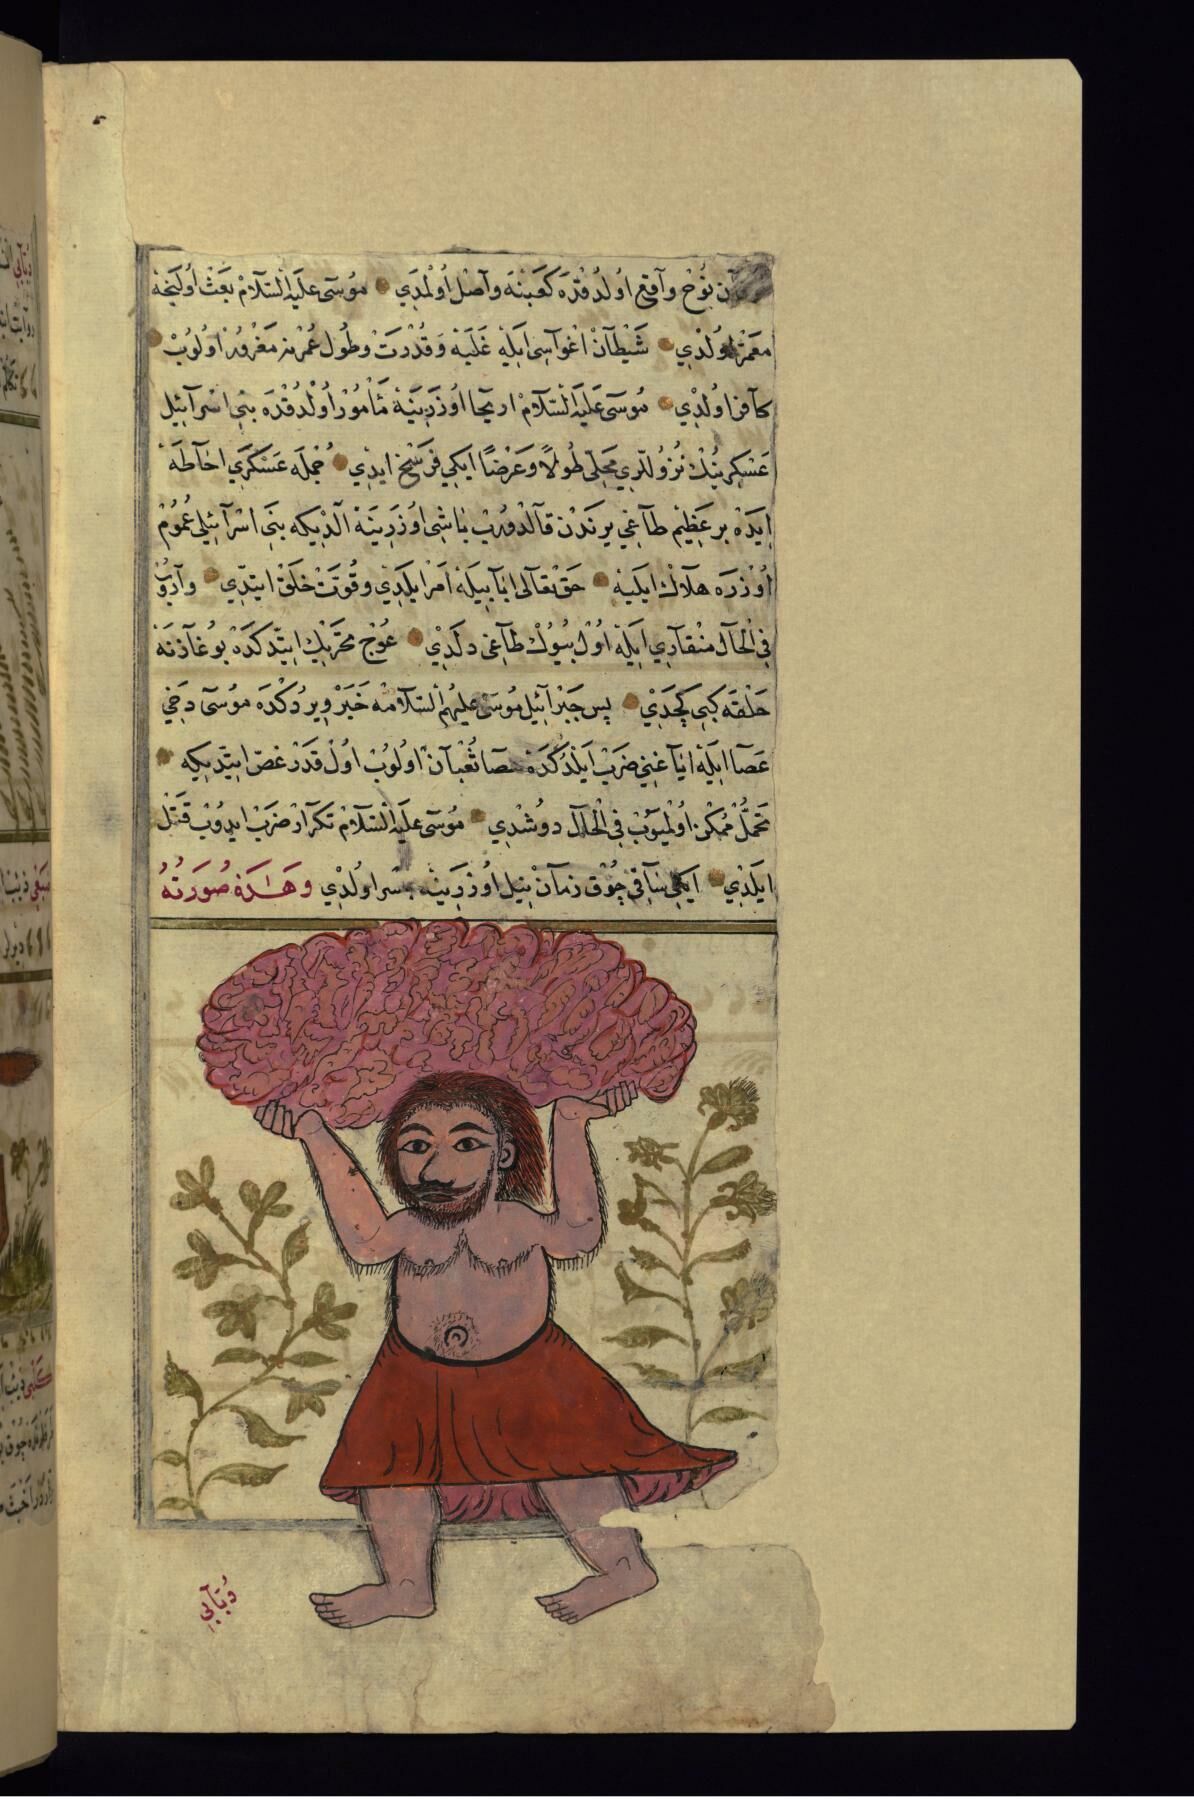 نوُخ وآقع اوُلدُقدَه كَعبنَه وآصل اوُلمدَي موُسى عليه السّلام بعَث اوُلنجه
معمّر اوُلدْي شَيْطآن اغوآسى ايله غلبَه وَقدْرَت وطوُل عمْرنه مَغرُور اوُلوُبْ
كآفر اوُلدْي موُسى عَليَه السّلام اريحا اوُزرينَه مأموُر اوُلدُقدَه بنى اسْرآئيل
عَسْكرينُك نزوُللري محَلى طوُلاً وعَرْضاً ايكي فَرسَخ ايدْي جُملَه عَسْكَري احآطَه
ايدَه بر عَظيم طآغي يرندَن قآلدوُرب بآشى اوُزرينَه الدْيكه بنَي اسْرآئيلى عموُم
اوُزرَه هلآك ايليَه حَق تعآلى ابآبيله اَمر ايلدَي وقوُّت خَلق ايتدّي
فى الحآل منقآري ايله اوُل بيُوك طآغى دلدَي عوُج تحريك ايتدّكده بوُغآزنَه
حَلقَه كبى كچدَي پس جَبرآئيل موُسى عليهم السّلامه خَبر ويردُكدَه موُسى دَخي
عَصآ ايله ايآغني ضَربْ ايلدُكدَه عصا ثعْبآن اوُلوُب اوُل قدَر عَضّ ايتدّيكه
تحمّل ممُكن اوُلميوُب فى الحآل دوُشْدي موُسى عليه السّلام تكرآر ضَرب ايدوُب قَتل
ايلدَي ايكى سآقى چوُق زمآن نيل اوُزرينه جسْر اوُلدْي وهَذه صوُرَتهُ
دُبّآبى